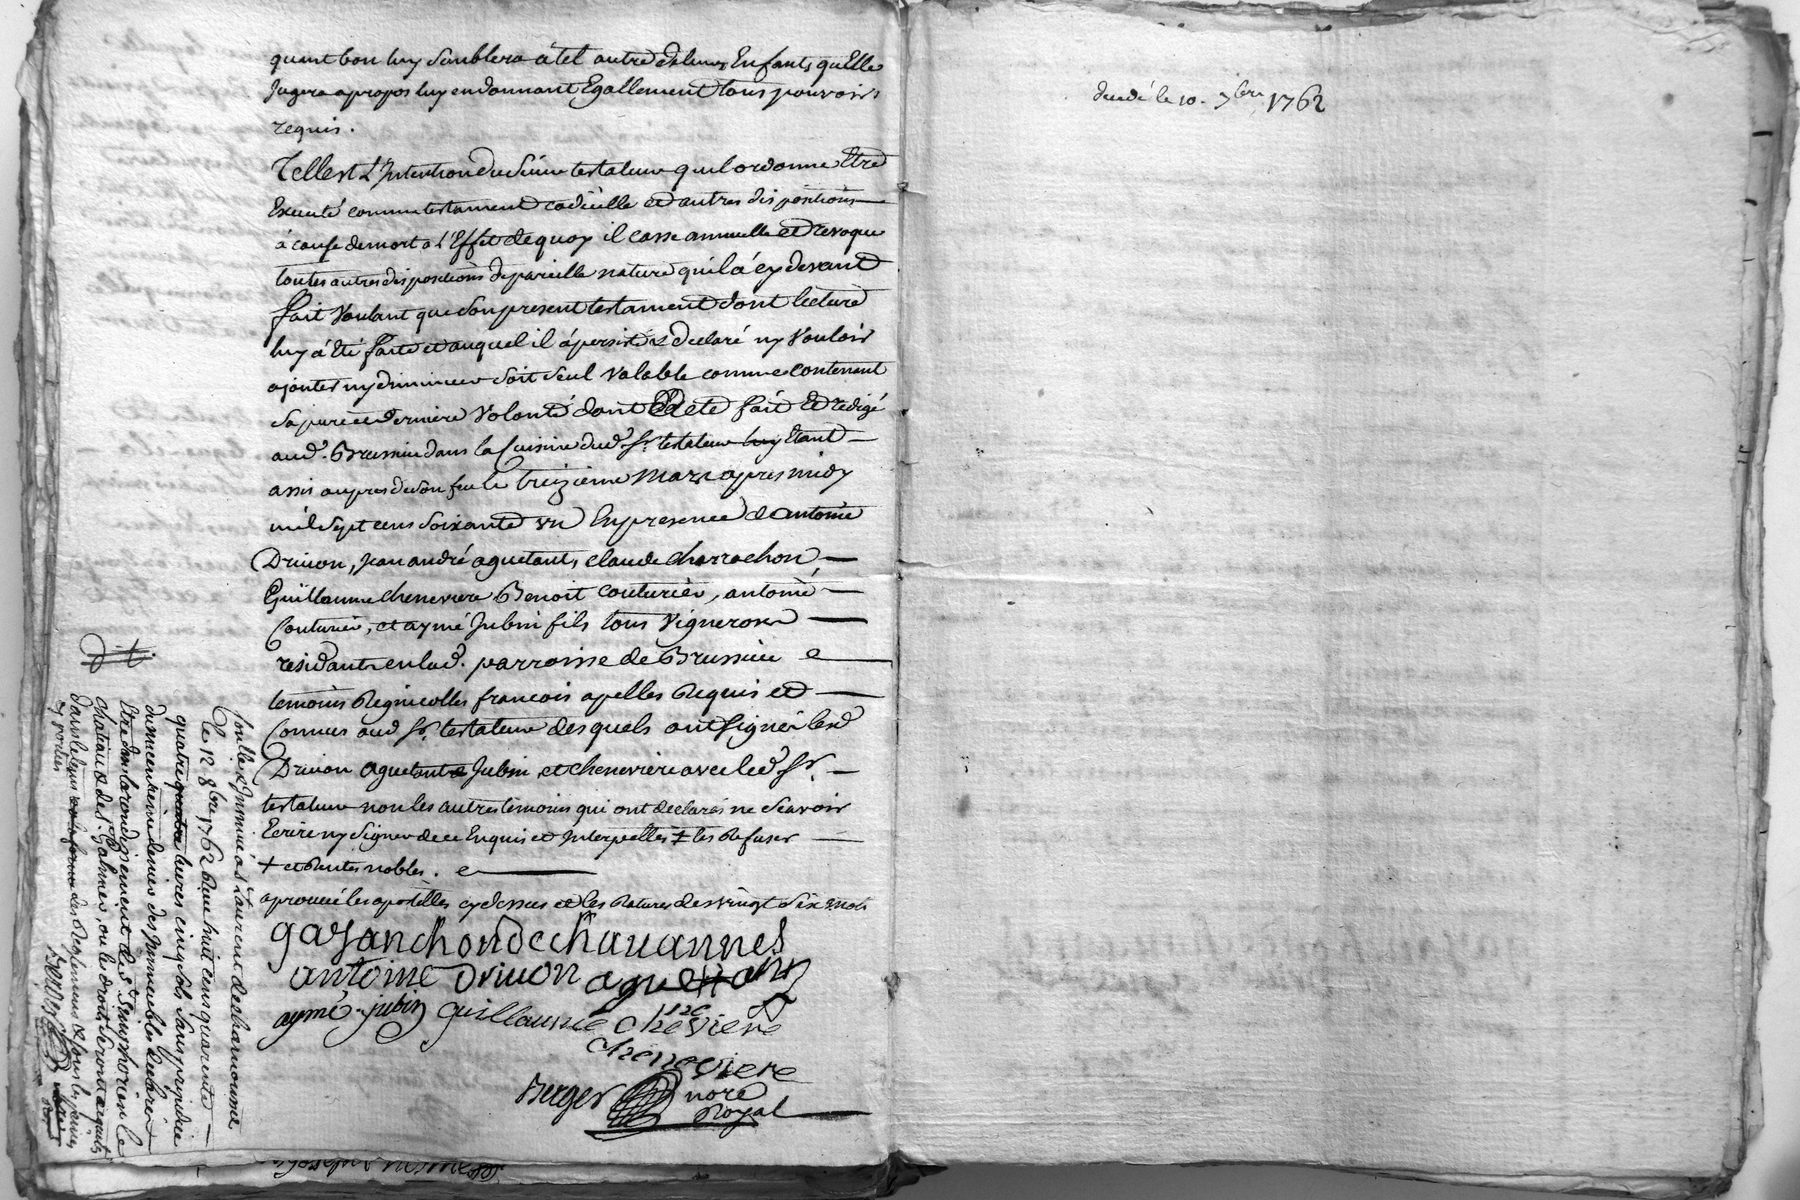 quant bon luy semblera à tel autre de leurs Enfants qu'Elle
Jugera apropos luy en donnant Egallement tous pouvoirs
requis.
Telle est L'Intention du Sieur testateur quil ordonne Etre
Executé comme testament codicille et autres dispositions
à cause de mort a l'Effet de quoy il casse annulle et revoque
toutes autres dispositions de pareille nature quil à cy devant
fait Voulant que son present testament dont lecture
luy à Eté faite et auquel il á persisté & declaré ny Vouloir
ajouter ny diminuer soit seul Valable comme contenant
sa pure et derniere Volonté dont acte fait et redigé
aud. Brussieu dans la Cuisine dud. Sr. testateur luy Etant
assis aupres de son feu le treizieme Mars apres midy
mil sept cens soixante un En presence de antoine
Drivon, Jean andré aguetant, claude charrachon,
Guillaume cheneviere Benoit couturier, antoine
Couturier, et aymé Jubin fils tous Vignerons
residants en lad. parroisse de Brussieu
temoins Regnicolles francois apellés Requis et
Connus aud Sr. testateur des quels ont signés lesd
Drivon aguetant Jubin et cheneviere avec led Sr.
testateur non les autres temoins qui ont declarés ne Scavoir
Ecrire ny signer de ce Enquis et Interpellés + les Refuser
+ et Rentes nobles.
aprouvé les apostilles cy dessus et les Ratures de vingt six mots
gayanchon de chavannes
antoine Drivon aguettant
aymé jubin guillaume cheneviere
cheneviere
Berger nore
Royal
Conllé & Insinué à St Laurent de chamousset
le 12 8bre 1762 Reçu huit cens quarante
quatre livres cinq sols sans prejudice
du
Etre dans larondissement de St Simphorien le
chateau de St Galmier, ou les droits seront acquités
dans le des Reglemens & sous les peines
y portées
Berger
Dudé le 10. 7bre 1762